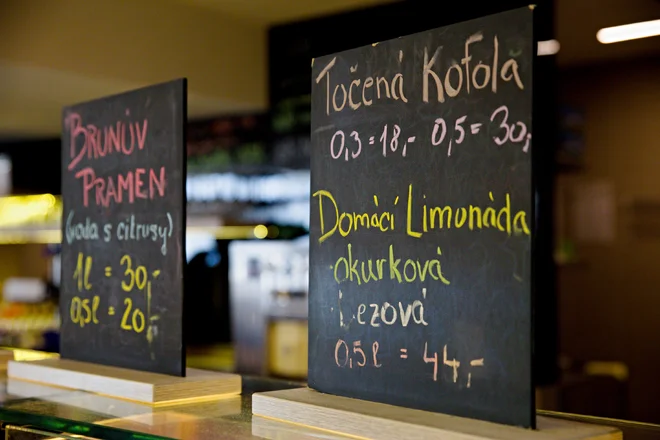 BRUNŮV
PRAMEN
(voda s citrusy)
1l = 30,-
0,5l = 20,-
Točená Kofola
0,3 = 18,- 0,5 = 30,-
Domácí Limonáda
okurková
0,5l = 44,-